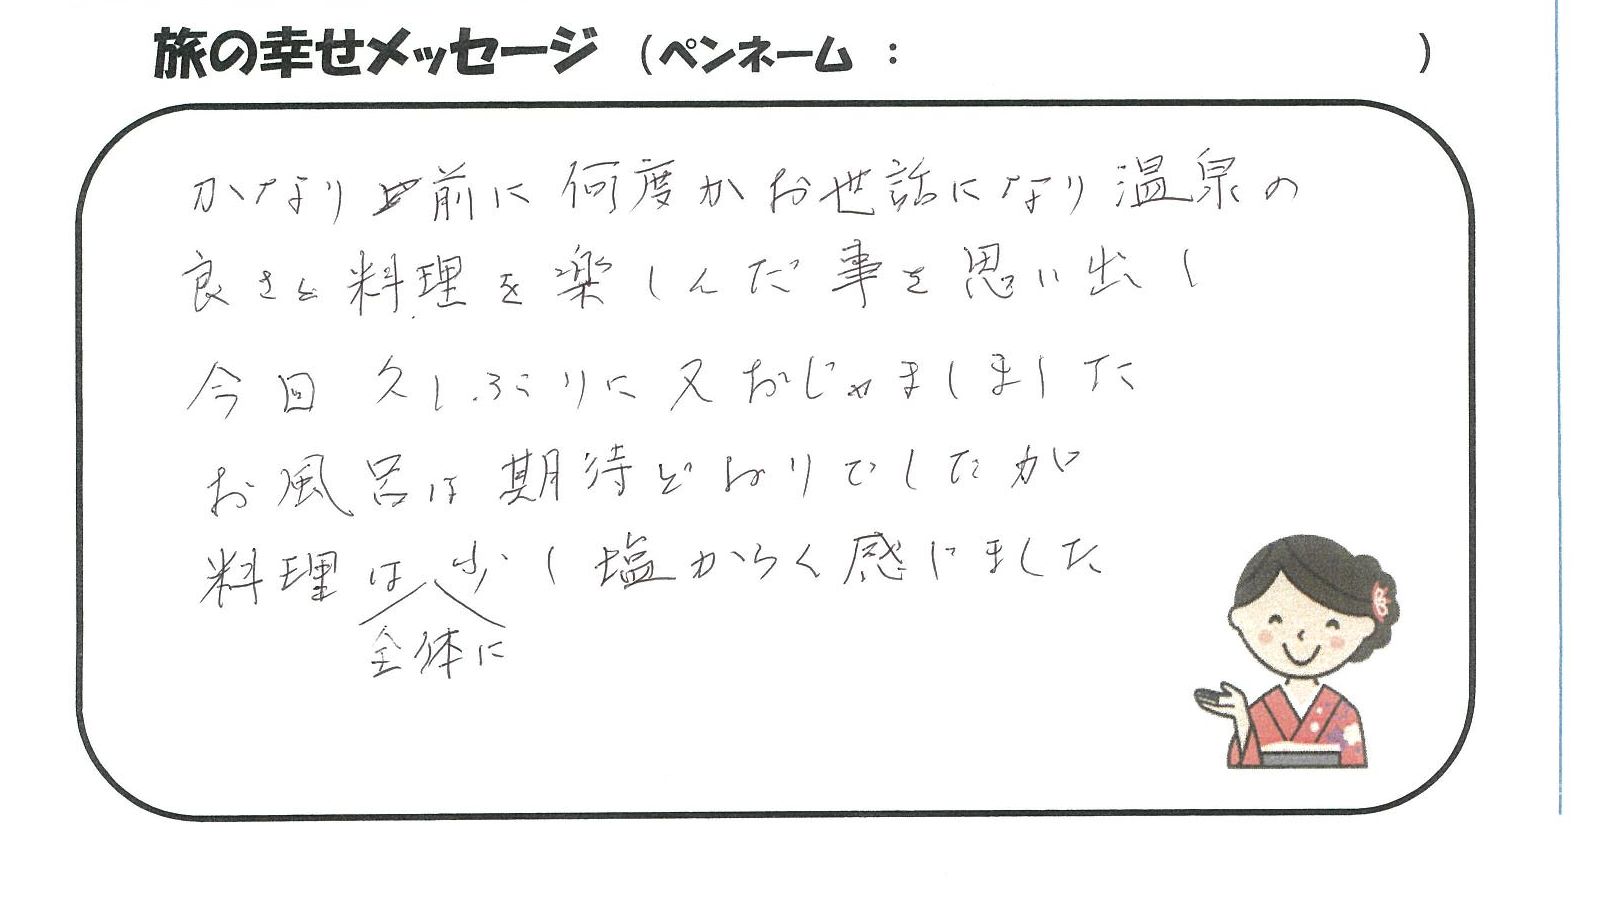 旅の幸せメッセージ （ペンネーム ： ）
かなり前に何度かお世話になり温泉の
良さと料理を楽しんだ事を思い出し
今回 久しぶりに又おじゃましました
お風呂は期待どおりでしたが
料理は全体に少し塩からく感じました